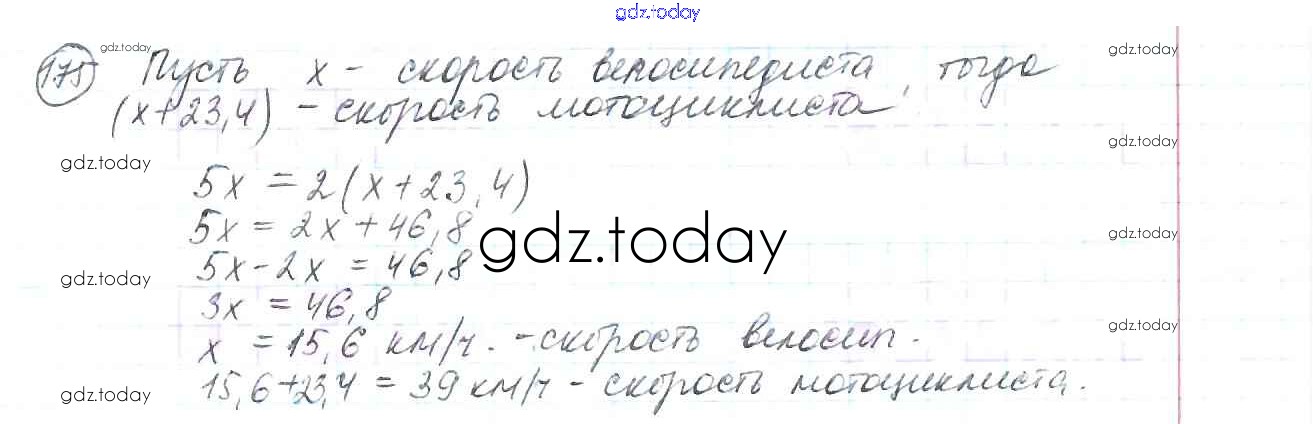 gdz.today
175 gdz.today Пусть x - скорость велосипедиста, тогда gdz.today
(x+23,4) - скорость мотоциклиста
gdz.today
gdz.today
5x = 2(x+23,4)
5x = 2x + 46,8
gdz.today
gdz.today
5x-2x = 46,8
gdz.today
3x = 46,8
gdz.today
x = 15,6 км/ч. - скорость велосип.
15,6+23,4 = 39 км/ч - скорость мотоциклиста.
gdz.today